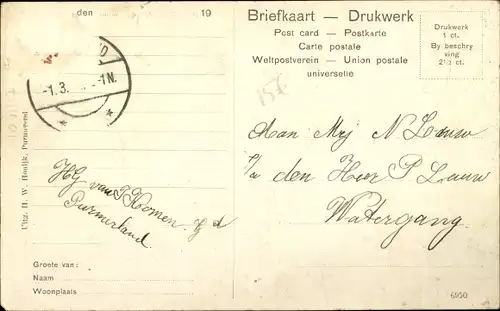 den 19
Briefkaart — Drukwerk
Post card — Postkarte
Carte postale
Weltpostverein — Union postale
universelle
Drukwerk
1 ct.
By beschry
ving
2½ ct.
-1.3. -1N.
157
Aan Mej N Lauw
p/a den Heer P Lauw
Watergang
HG van Koomen
Purmerland.
Uitg. H. W. Houdijk, Purmerend
Groete van:
Naam
Woonplaats
6950